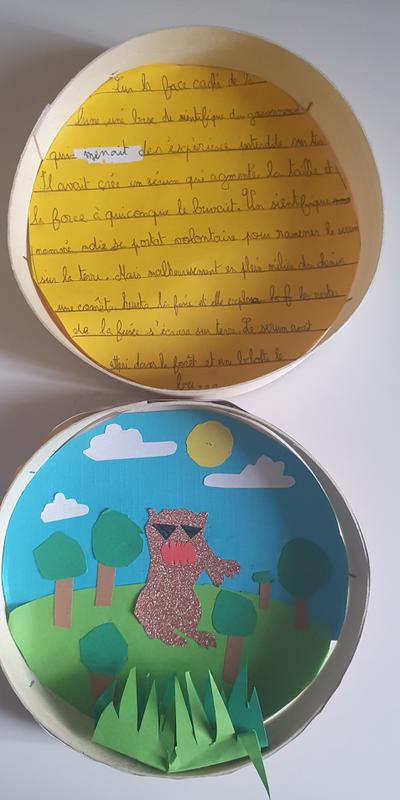 Sur la face caché de la
lune, une base de sientifique du gouvernement
qui menait des éxpérience interdite sur terre
Il avait crée un sérum qui agmente la taille et
la force à quiconque le buvait. Un sientifique
nommé odie se portat volontaire pour ramener le serum
sur la terre. Mais malheureusement en plein milieu du chemin
une comète heurta la fusée et elle explosa le reste
de la fusée s'écrasa sur terre. Le serum avait
atteri dans la forêt et un
bou...